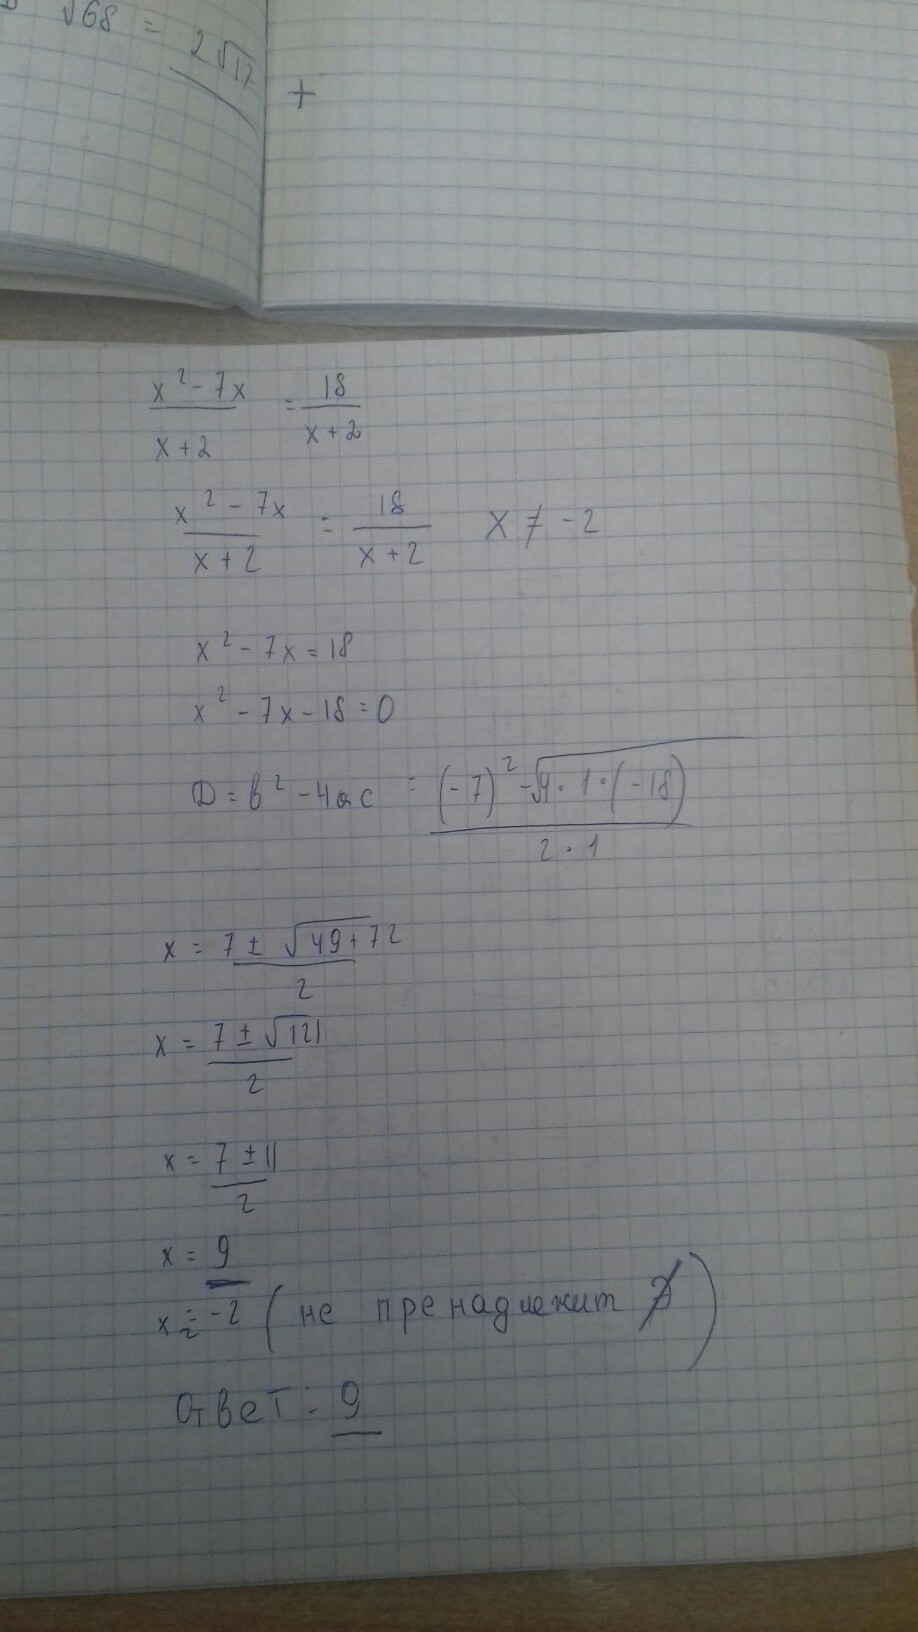 √68 = 2√17
+
x² - 7x / x + 2 = 18 / x + 2
x² - 7x / x + 2 = 18 / x + 2   x ≠ -2
x² - 7x = 18
x² - 7x - 18 = 0
D = b² - 4ac = (-7)² - √4 · 1 · (-18) / 2 · 1
x = 7 ± √49 + 72 / 2
x = 7 ± √121 / 2
x = 7 ± 11 / 2
x = 9
x₂ = -2 ( не пренадлежит )
Ответ: 9